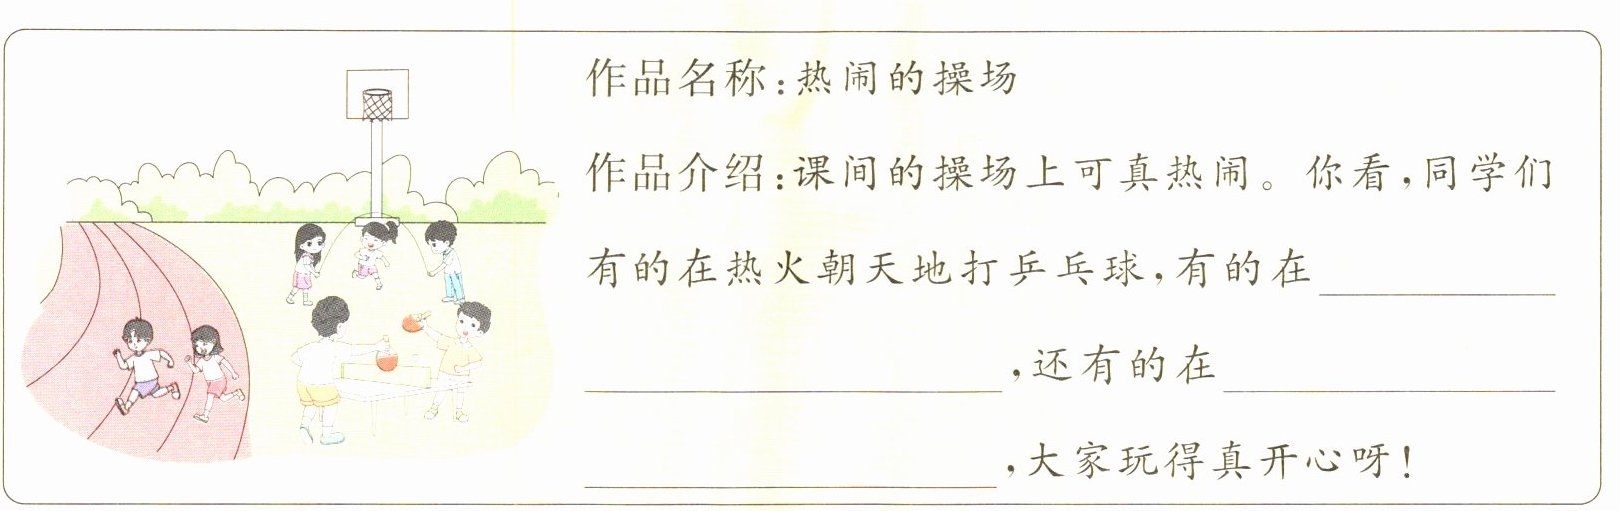 作品名称:热闹的操场
作品介绍:课间的操场上可真热闹。你看,同学们
有的在热火朝天地打乒乓球,有的在
,还有的在
,大家玩得真开心呀!